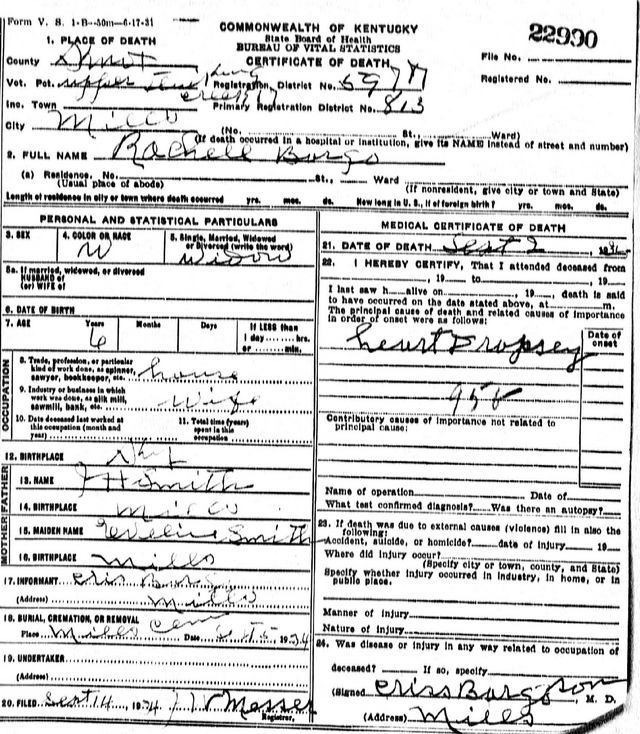 Form V. S. 1-B—50m—6-17-31
COMMONWEALTH OF KENTUCKY
State Board of Health
BUREAU OF VITAL STATISTICS
CERTIFICATE OF DEATH
22990
File No.
Registered No.
1. PLACE OF DEATH
County
Vot. Pct. upper Registration District No.
Inc. Town Primary Registration District No. 813
City Mills (No. St., Ward)
(If death occurred in a hospital or institution, give its NAME instead of street and number)
2. FULL NAME Rachell Bargo
(a) Residence. No. St., Ward
(Usual place of abode) (If nonresident, give city or town and State)
Length of residence in city or town where death occurred yrs. mos. ds. How long in U. S., if of foreign birth? yrs. mos. ds.
PERSONAL AND STATISTICAL PARTICULARS
3. SEX
4. COLOR OR RACE W
5. Single, Married, Widowed or Divorced (write the word) Widow
5a. If married, widowed, or divorced
HUSBAND of
(or) WIFE of
6. DATE OF BIRTH
7. AGE Years Months Days If LESS than
6 1 day hrs.
or min.
OCCUPATION
8. Trade, profession, or particular
kind of work done, as spinner, house
sawyer, bookkeeper, etc.
9. Industry or business in which
work was done, as silk mill, wife
sawmill, bank, etc.
10. Date deceased last worked at
this occupation (month and
year)
11. Total time (years)
spent in this
occupation
12. BIRTHPLACE
FATHER
13. NAME J H Smith
14. BIRTHPLACE Mills
MOTHER
15. MAIDEN NAME Eveline Smith
16. BIRTHPLACE Mills
17. INFORMANT Cris Bargo
(Address) Mills
18. BURIAL, CREMATION, OR REMOVAL
Place Mills Cem Date 5 1934
19. UNDERTAKER
(Address)
20. FILED Sept 14 1934 Messer
Registrar.
MEDICAL CERTIFICATE OF DEATH
21. DATE OF DEATH Sept 2
22. I HEREBY CERTIFY, That I attended deceased from
, 19 to , 19
I last saw h alive on , 19 , death is said
to have occurred on the date stated above, at m.
The principal cause of death and related causes of importance
in order of onset were as follows:
Date of
onset
heart Dropsey
95b
Contributory causes of importance not related to
principal cause:
Name of operation Date of
What test confirmed diagnosis? Was there an autopsy?
23. If death was due to external causes (violence) fill in also the
following:
Accident, suicide, or homicide? date of injury 19
Where did injury occur?
(Specify city or town, county, and State)
Specify whether injury occurred in industry, in home, or in
public place.
Manner of injury
Nature of injury
24. Was disease or injury in any way related to occupation of
deceased? If so, specify
(Signed Criss Bargo son, M. D.
(Address) Mills